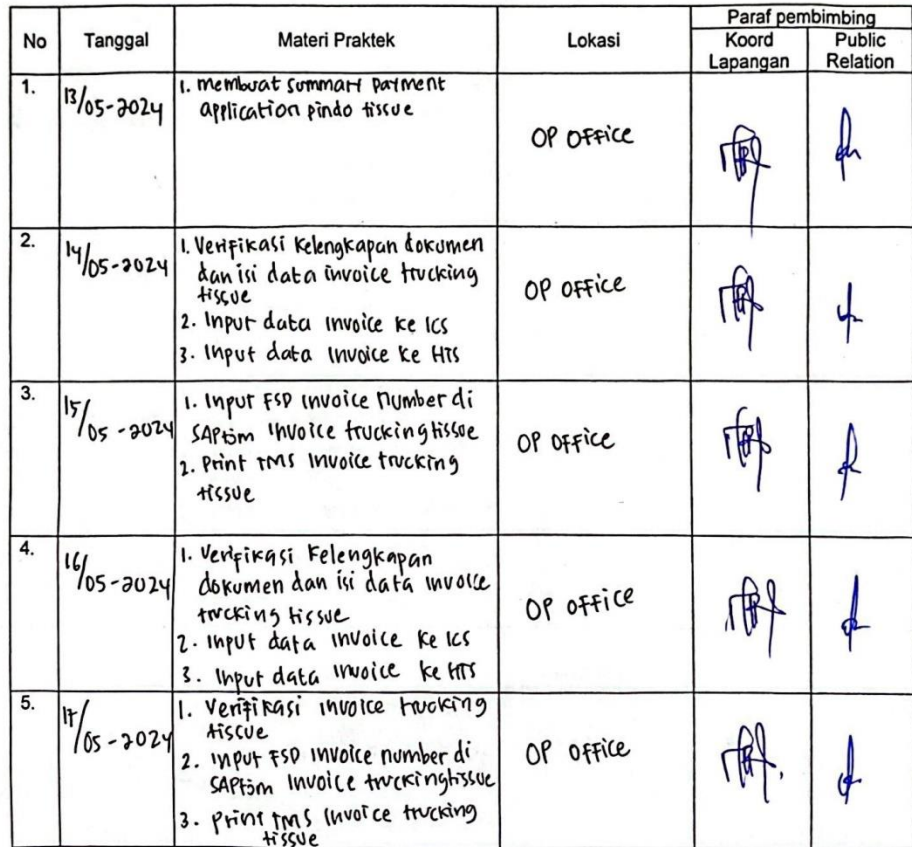 No Tanggal Materi Praktek Lokasi Paraf pembimbing
Koord Lapangan Public Relation
1. 13/05-2024 1. membuat summary payment
application pindo tissue
OP Office
2. 14/05-2024 1. Verifikasi kelengkapan dokumen
dan isi data invoice trucking
tissue
2. Input data invoice ke ICS
3. Input data invoice ke HTS
OP Office
3. 15/05-2024 1. Input FSP invoice number di
invoice trucking tissue
2. Print TMS invoice trucking
tissue
OP Office
4. 16/05-2024 1. Verifikasi kelengkapan
dokumen dan isi data invoice
trucking tissue
2. Input data invoice ke ICS
3. Input data invoice ke HTS
OP Office
5. 17/05-2024 1. Verifikasi invoice trucking
tissue
2. Input FSP invoice number di
invoice trucking tissue
3. Print TMS invoice trucking
tissue
OP Office